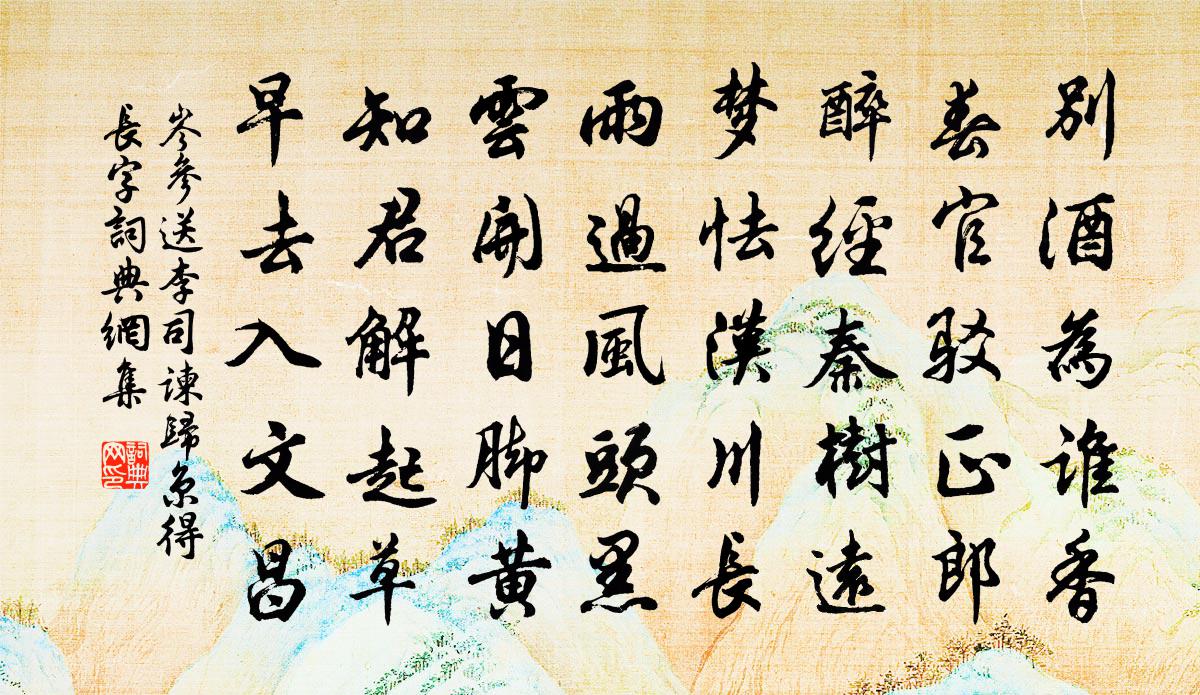 別酒為誰香
春官駁正郎
醉經秦樹遠
梦怯漢川長
雨過風頭黑
雲開日脚黃
知君解起草
早去入文昌
岑參送李司諫歸京得
長字詞典網集
詞典
网印